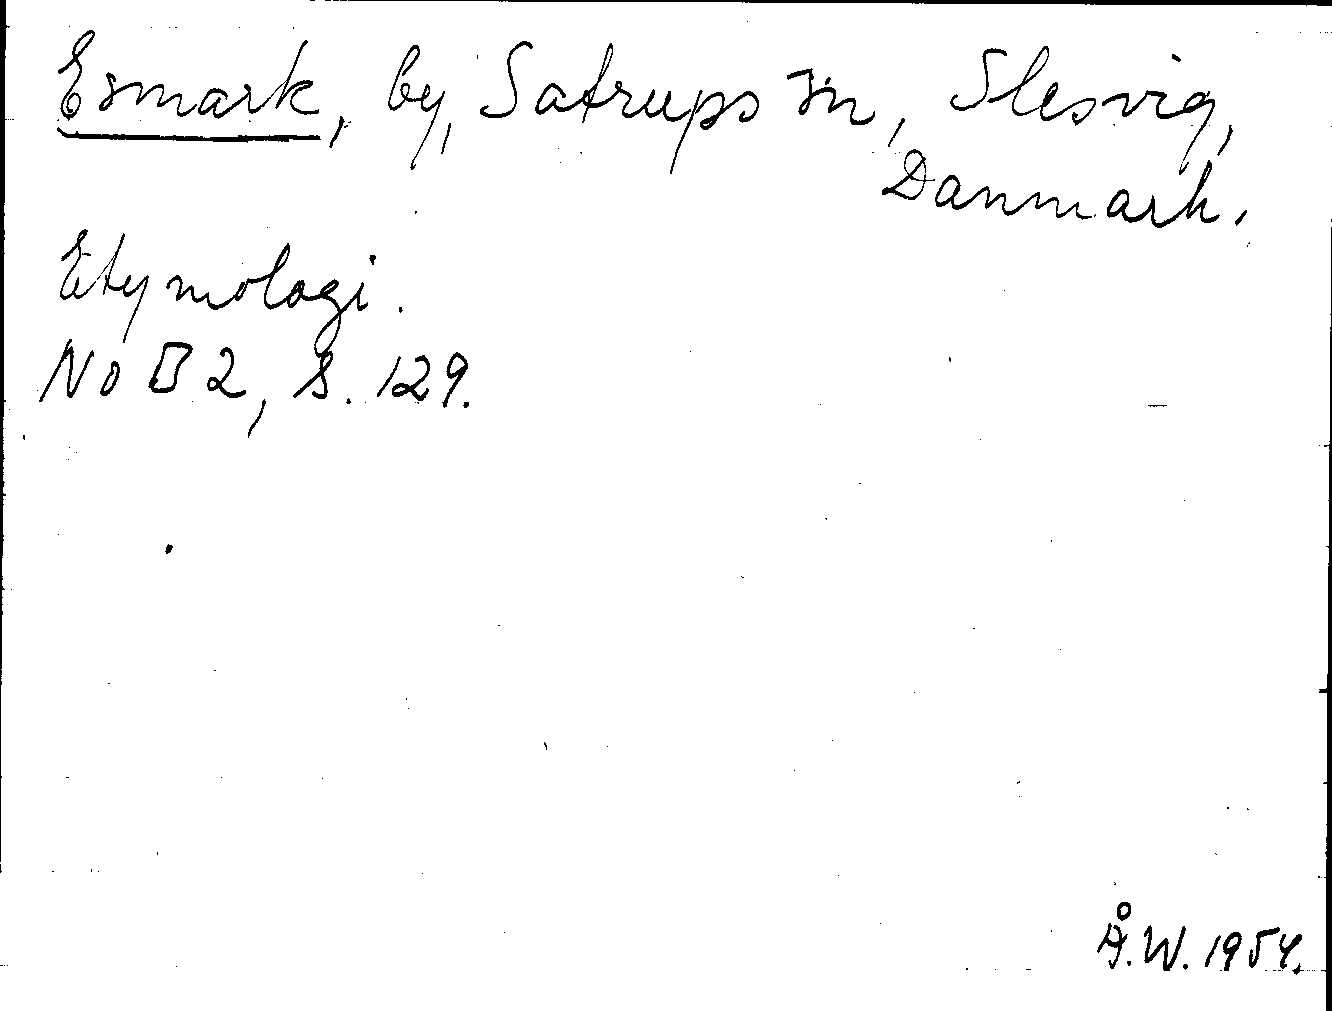 Esmark, by, Satrups sn, Slesvig,
Danmark.
Etymologi.
NoB 2, s. 129.
Å.W. 1954.